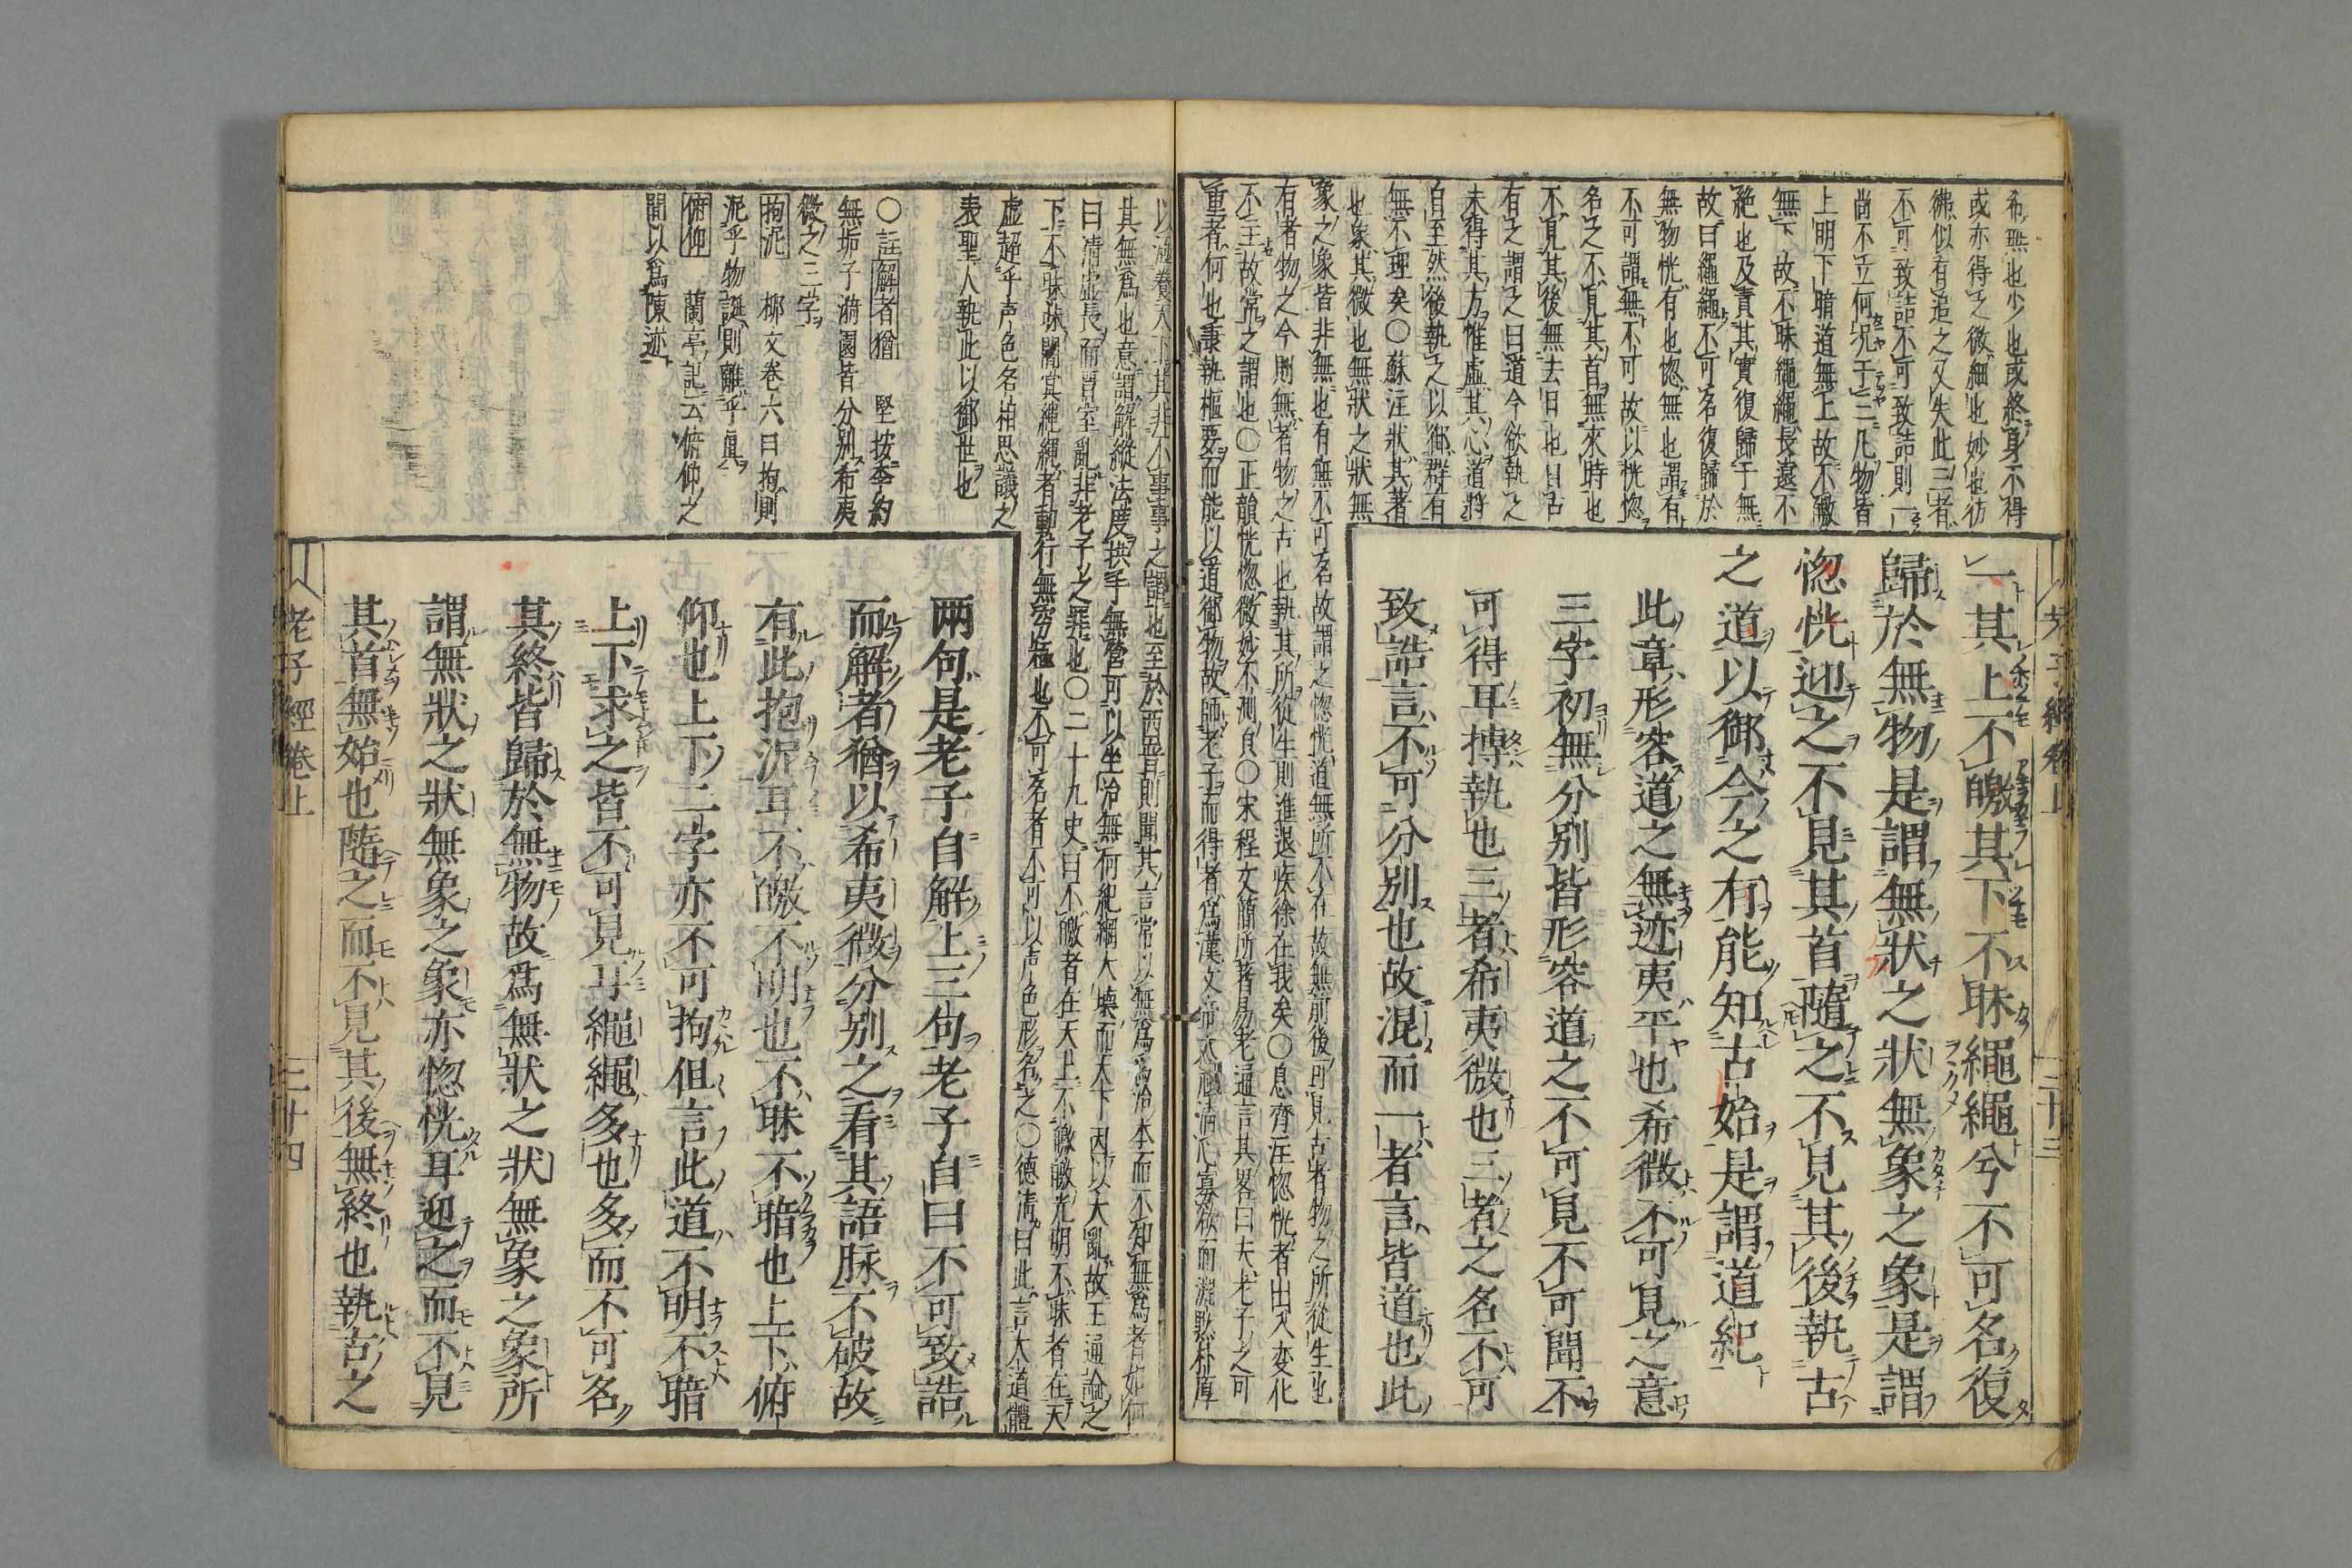 老子經卷上
三十三
一其上不皦其下不昧繩繩兮不可名復
歸於無物是謂無狀之狀無象之象是謂
惚恍迎之不見其首隨之不見其後執古
之道以御今之有能知古始是謂道紀
此章形容道之無迹夷平也希微不可見之意
三字初無分別皆形容道之不可見不可聞不
可得耳摶執也三者希夷微也三者之名不可
致詰言不可分別也故混而一者言皆道也此
希無也少也或終身不得
或亦得之微細也妙也彷
彿似有追之又失此三者
不可致詰不可致詰則一
尚不立何況于三凡物皆
上明下暗道無上故不皦
無下故不昧繩繩長遠不
絕也及責其實復歸于無
故曰繩繩不可名復歸於
無物恍有也惚無也謂有
不可謂無不可故以恍惚
名之不見其首無來時也
不見其後無去日也日古
有之謂之曰道今欲執之
未得其方惟虛其心道將
自至然後執之以御群有
無不理矣〇蘇注狀其著
也象其微也無狀之狀無
象之象皆非無也有無不可名故謂之惚恍道無所不在故無前後可見古者物之所從生也
有者物之今則無者物之古也執其所從生則進退疾徐在我矣〇息齋注惚恍者出入変化
不主故常之謂也〇正韻恍惚微妙不測貞〇宋程文簡所著易老通言其畧曰大老子之可
重者何也秉執樞要而能以道御物故師老子而得者爲漢文帝
以涵養天下其非不事事之謂也至於西晋則聞其言常以無爲爲治本而不知無爲者如何
其無爲也意謂解縱法度拱手無營可以坐治無何紀綱大壊而天下因以大亂故王通論之
曰清虛長而晋室亂非老子之罪也〇二十九史曰不皦者在天上不皦皦光明不昧者在天
下不昧昧闇冥繩繩者動行無窮極也不可名者不可以声色形名之〇德清曰此言大道體
虛超乎声色名相思議之
表聖人執此以御世也
〇註解者猶 堅按李約
無垢子漪園皆分別希夷
微之三字
拘泥 柳文卷六曰拘則
泥乎物誕則離乎眞
俯仰 蘭亭記云俯仰之
間以爲陳迹
兩句是老子自解上三句老子自曰不可致詰
而解者猶以希夷微分別之看其語脉不破故
有此抱泥耳不皦不明也不昧不暗也上下俯
仰也上下二字亦不可拘但言此道不明不暗
上下求之皆不可見耳繩繩多也多而不可名
其終皆歸於無物故爲無狀之狀無象之象所
謂無狀之狀無象之象亦惚恍耳迎之而不見
其首無始也隨之而不見其後無終也執古之
老子經卷上
三十四